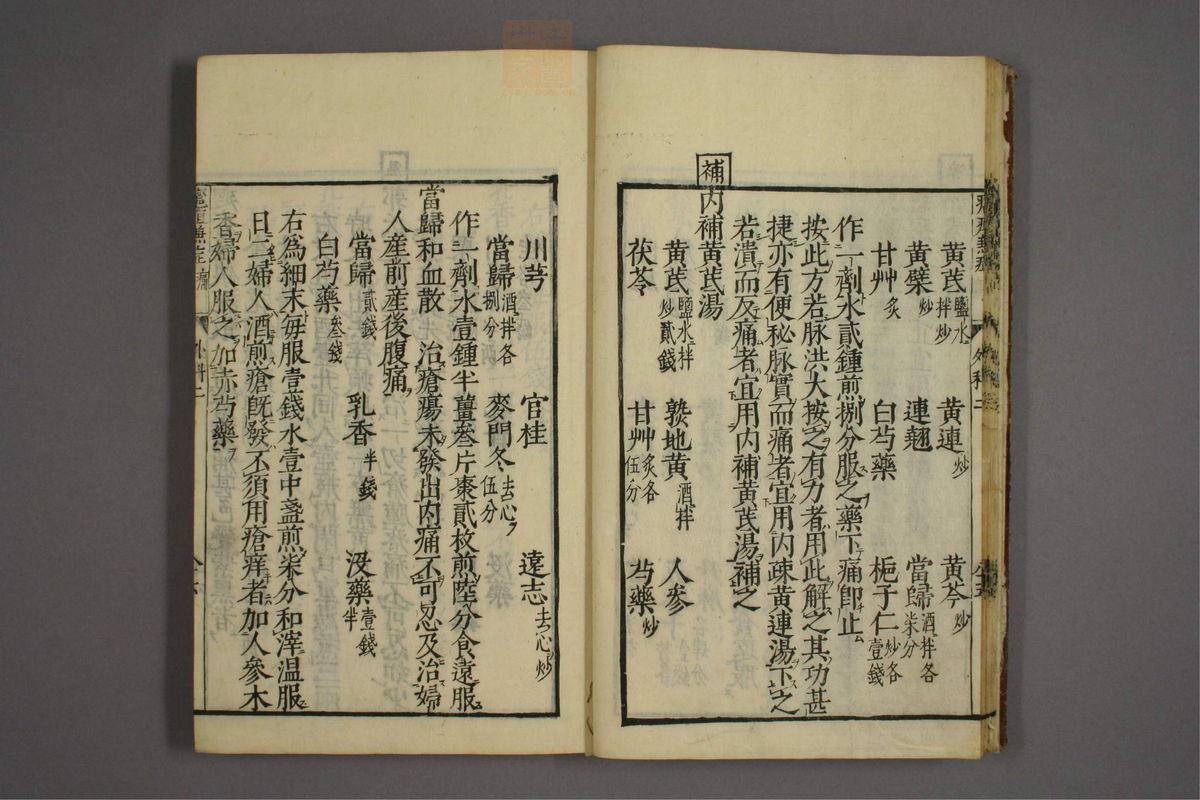 黄芪鹽水拌炒 黄連炒 黄芩炒
黄檗炒 連翹 當歸酒拌各柒分
甘艸炙 白芍藥 梔子仁炒各壹錢
作一劑水貳鍾煎捌分服之藥下痛卽止
按此方若脉洪大按之有力者用此解之其功甚
捷亦有便秘脉實而痛者宜用内疎黄連湯下之
若潰而及痛者宜用内補黄芪湯補之
補 内補黄芪湯
黄芪鹽水拌炒貳錢 熟地黄酒拌 人參
茯苓 甘艸炙各伍分 芍藥炒
川芎 官桂 遠志去心炒
當歸酒拌各捌分 麥門冬去心伍分
作一劑水壹鍾半薑叁片棗貳枚煎陸分食遠服
當歸和血散 治瘡瘍未發出内痛不可忍及治婦
人産前産後腹痛
當歸貳錢 乳香半錢 没藥壹錢半
白芍藥叁錢
右為細末毎服壹錢水壹中盞煎柒分和滓温服
日二婦人酒煎瘡既發不須用瘡痒者加人參木
香婦人服之加赤芍藥